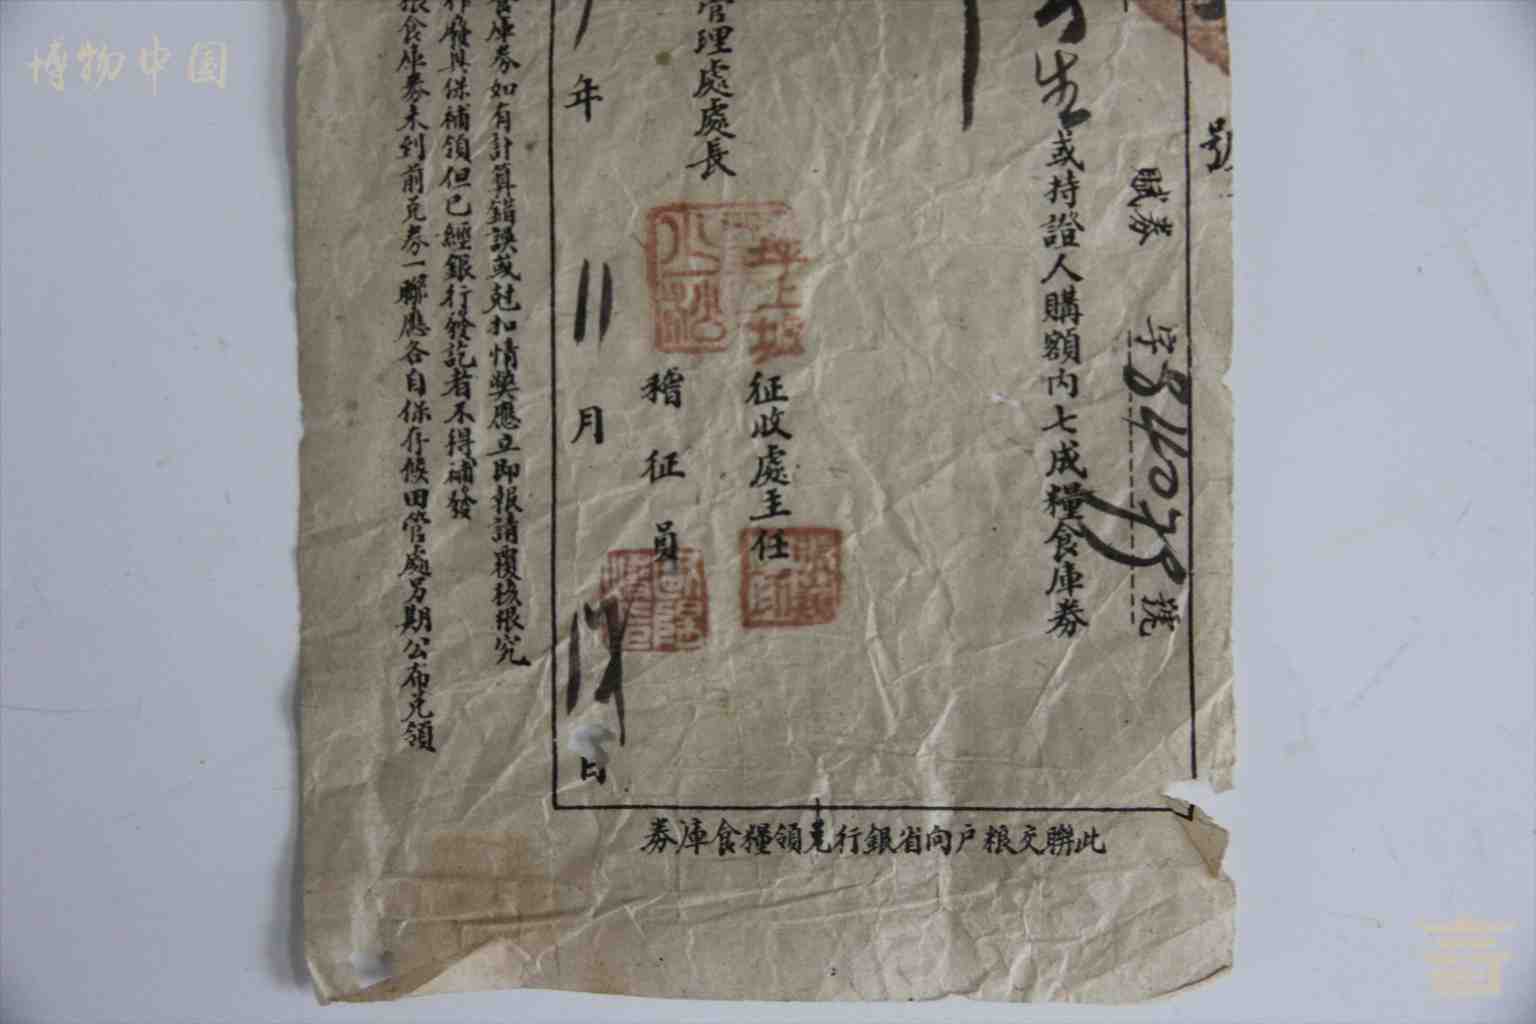 博物中国
號
賦券 字 號
生或持證人購額內七成糧食庫券
管理處處長
坪上
征收處主任
稽征員
年 11 月 17 日
庫券如有計算錯誤或尅扣情獘應立即報請覆核根究
作廢具保補領但已經銀行發訖者不得補發
粮食庫券未到前兌券一聯應各自保存候田管處另期公布兌領
此聯交粮户向省銀行兌領糧食庫券